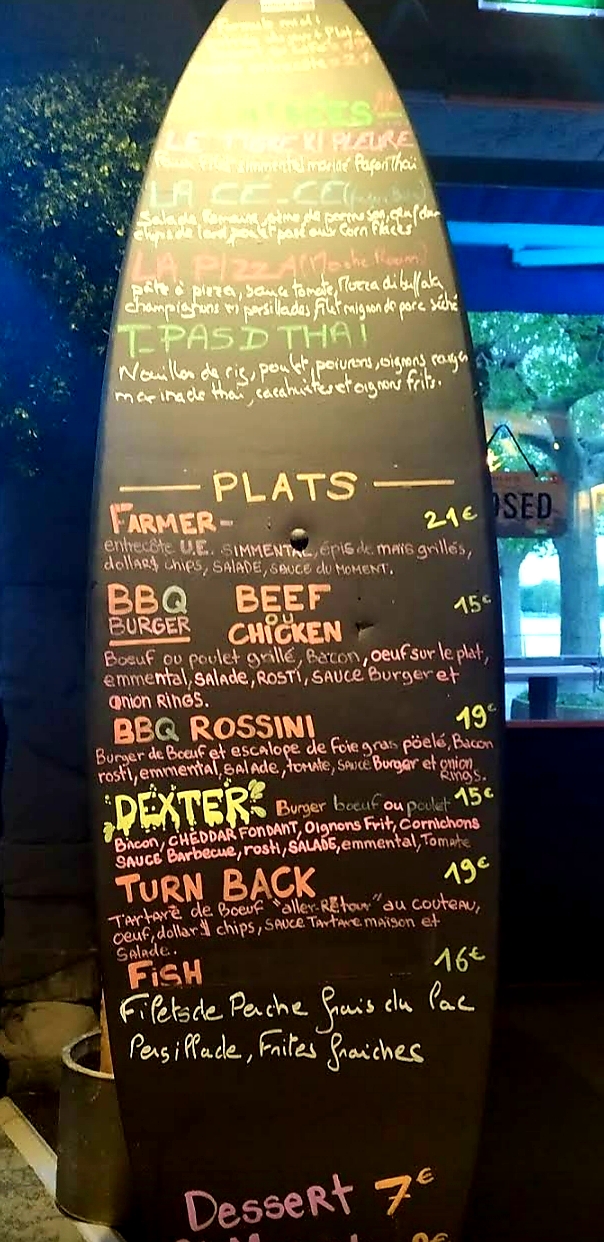 LE KI PLEURE
mariné façon Thaï
LA CE-CE
Salade Romaine,
chips de lard, poulet pané aux Corn Flakes
LA PIZZA
pâte à pizza, sauce tomate, Mozza di buffala,
champignons en persillades filet mignon de porc séché
T-PAS D THAI
Nouilles de riz, poulet, poivrons, oignons rouges
marinade thaï, cacahuètes et oignons frits.
PLATS
FARMER- 21€
entrecôte U.E. SIMMENTAL, épis de maïs grillés,
dollar$ chips, SALADE, SAUCE du MOMENT.
BBQ BURGER BEEF ou CHICKEN 15€
Boeuf ou poulet grillé, Bacon, oeuf sur le plat,
emmental, salade, ROSTI, SAUCE Burger et
onion RINGS.
BBQ ROSSINI 19€
Burger de Boeuf et escalope de foie gras pöêlé, Bacon
rosti, emmental, salade, tomate, SAUCE Burger et onion
Rings.
DEXTER Burger boeuf ou poulet 15€
Bacon, CHEDDAR FONDANT, Oignons Frit, Cornichons
SAUCE Barbecue, rosti, SALADE, emmental, Tomate
TURN BACK 19€
TARTARE de Boeuf "aller-Retour" au couteau,
oeuf, dollar$ chips, SAUCE TARTARE maison et
SALADE.
FISH 16€
Filets de Perche frais du lac
Persillade, Frites fraiches
Dessert 7€
OSED